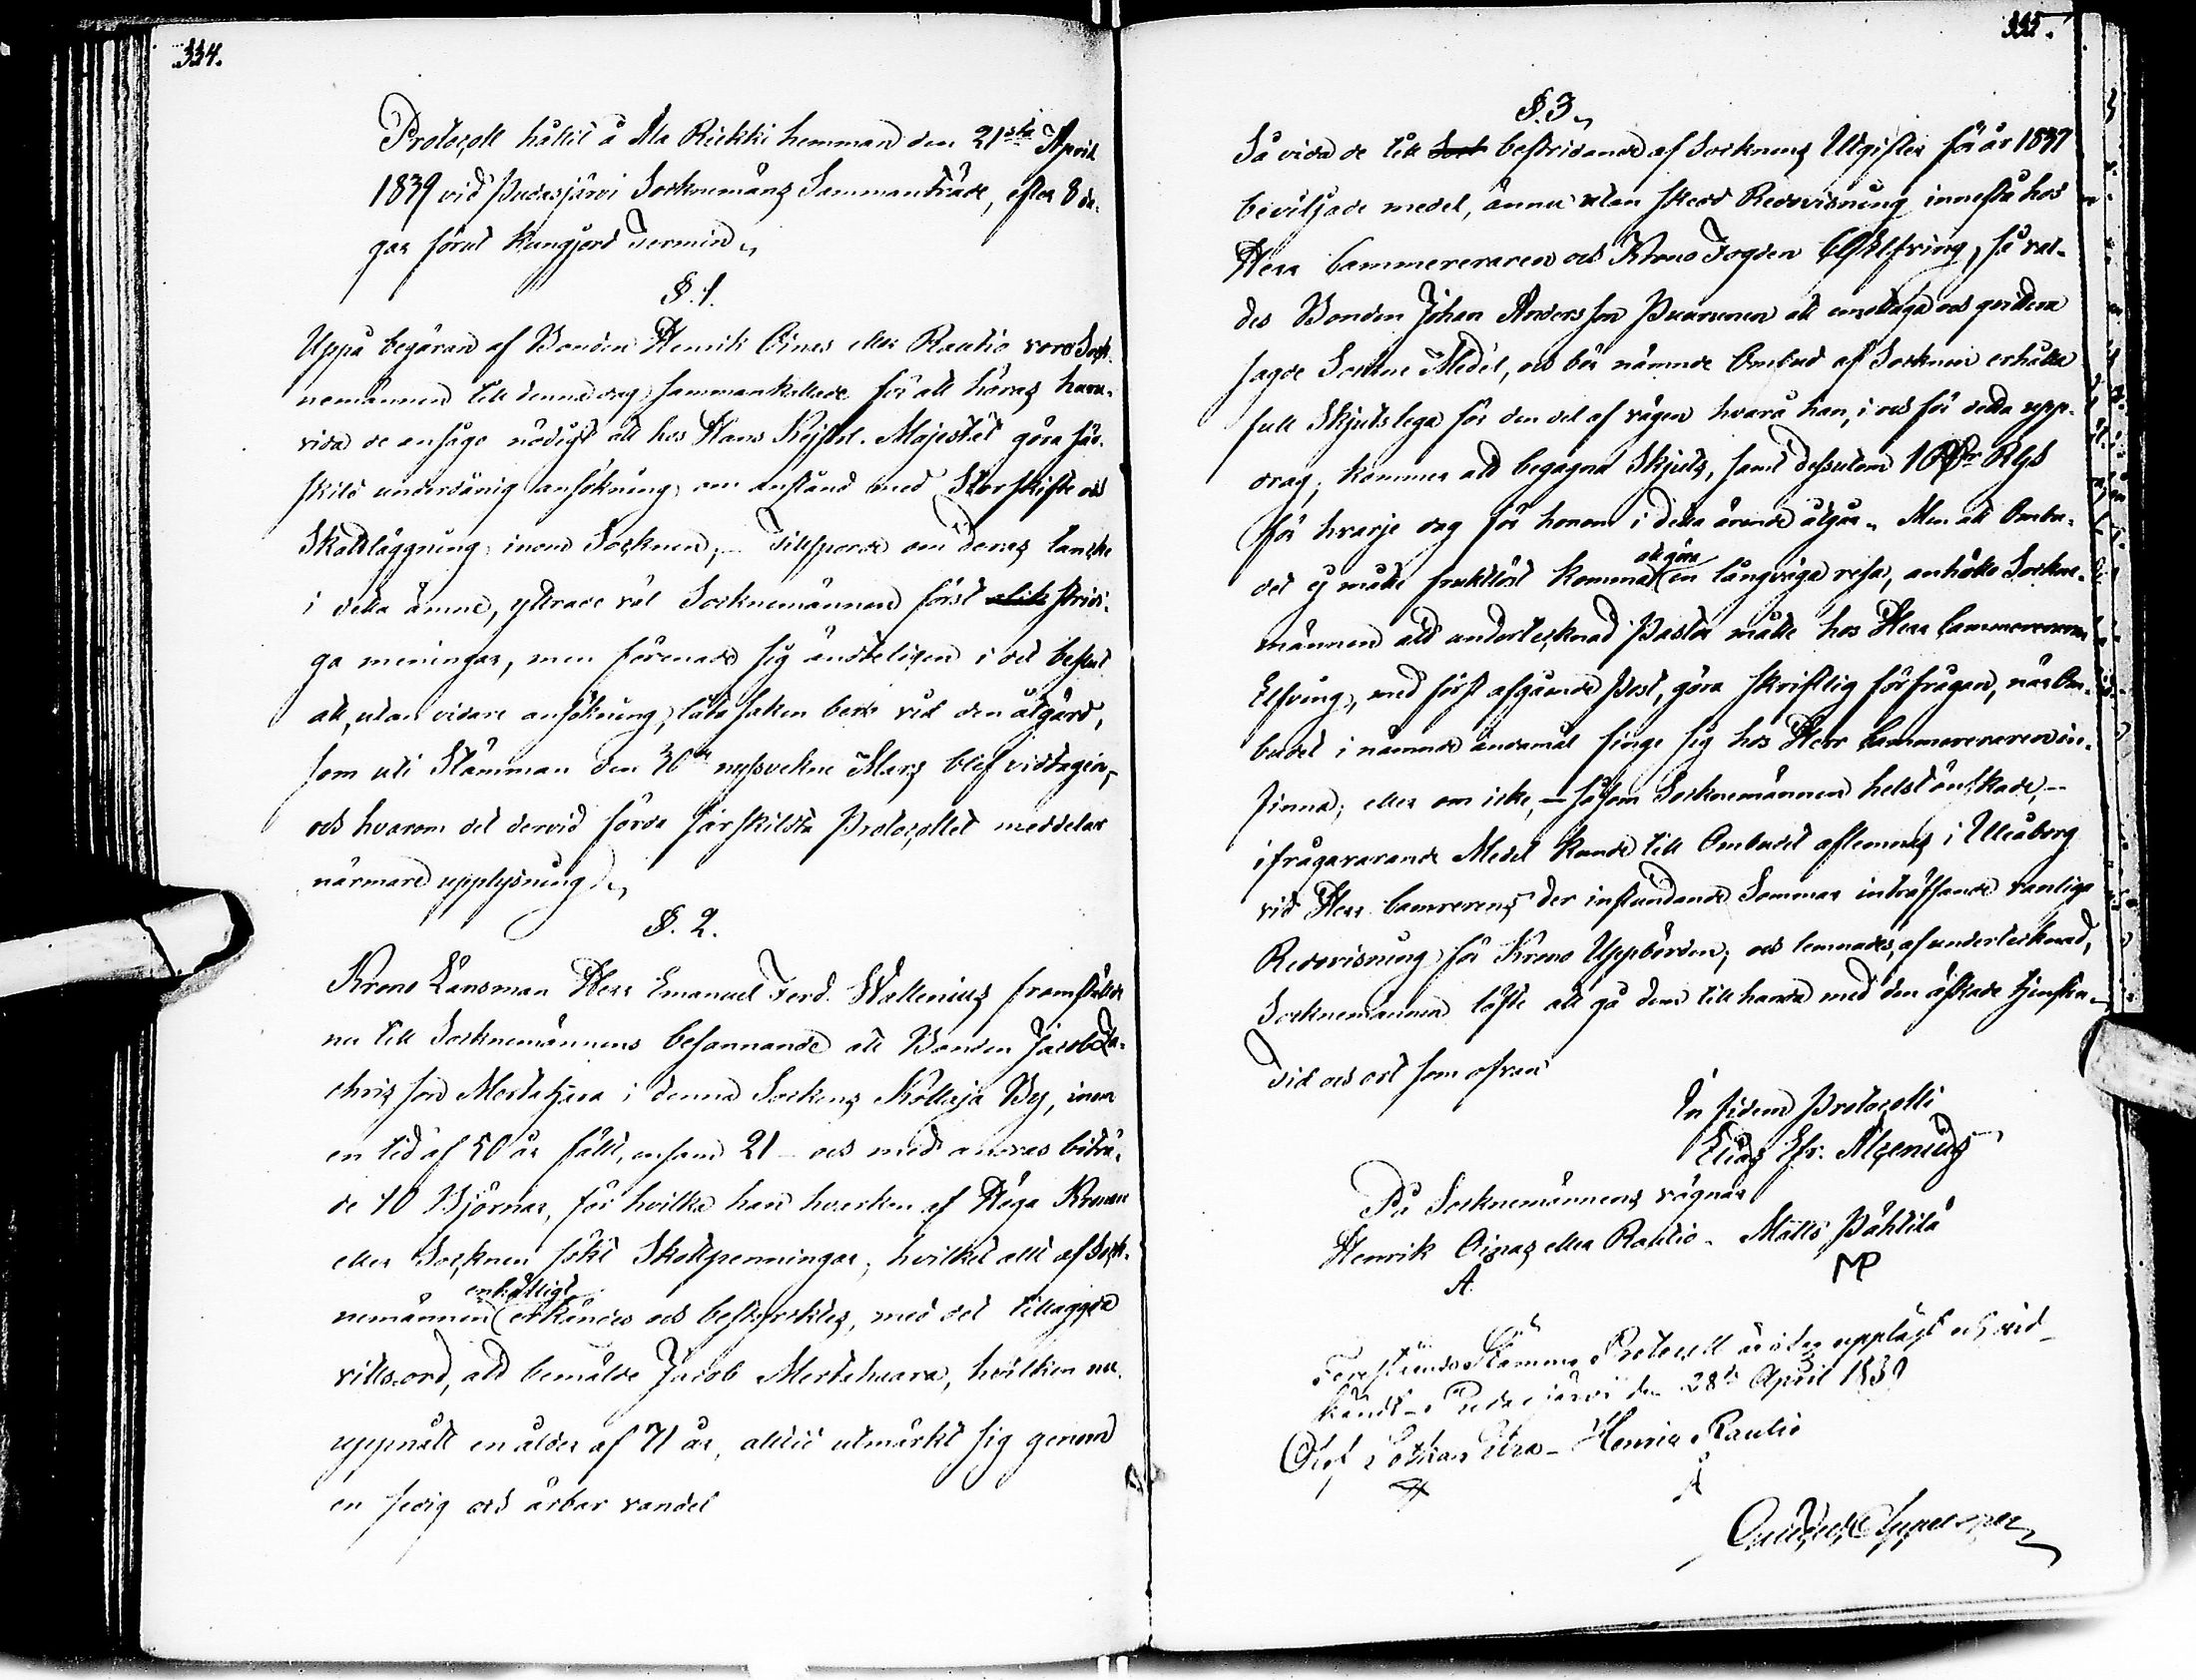 334.
Protocoll hållit å Ala Riekki hemman den 21sta April
1839 vid Pudasjärvi Socknemäns Sammanträde, efter 8 da-
gar förut kungjord Termin.
§. 1.
Uppå begäran af Bonden Henrik Oinas eller Rautio voro Sock-
nemännen till denna dag sammankallade för att höras huru-
vida de ansågo nödigt att hos Hans Kejserl. Majestät göra sär-
skild underdånig ansökning om anstånd med Storskifte och
Skattläggning inom Socknen; Tillsporde om deras tanke
i detta ämne, yttrade väl Socknemännen först stridi-
ga meningar, men förenade sig ändteligen i det beslut
att, utan vidare ansökning, låta saken bero vid den åtgärd,
som uti Stämman den 30de nyssvekne Mars blef vidtagen,
och hvarom det dervid förda särskildta Protocollet meddelar
närmare upplysning.
§. 2.
Krono Länsman Herr Emanuel Ferd. Wallenius framställde
nu till Socknemännens besannande att Bonden Jacob Za-
chrisson Mertahara i denna Sockens Kollaja By, inom
en tid af 50 år fällt, ensam 21 och med andras biträ-
de 10 Björnar, för hvilka han hvarken af Höga Kronan
eller Socknen sökt Skottpenningar; hvilket allt af Sock-
nemännen enhälligt erkändes och bestyrktes, med det tillagda
vittsord, att bemälde Jacob Mertahara, hvilken nu
uppnått en ålder af 71 år, alltid utmärkt sig genom
en sedig och ärbar vandel
335.
§. 3.
Så vida de till bestridande af Socknens Utgifter för år 1837
beviljade medel, ännu utan skedd Redovisning innestå hos
Herr Cammereraren och Krono Fogden Elfving, så val-
des Bonden Johan Andersson Puurunen att emottaga och qvittera
sagde Sockne Medel, och bör nämnde Ombud af Socknen erhålla
full Skjutslega för den del af vägen hvarå han, i och för detta upp-
drag, kommer att begagna Skjuts, samt dessutom 1 Rub Rgs
för hvarje dag för honom i detta ärende åtgår. Men att Ombu-
det ej måtte fruktlöst komma att göra en långväga resa, anhöllo Sockne-
männen att undertecknad Pastor måtte hos Herr Cammereraren
Elfving, med först afgående Post, göra skriftlig förfrågan, när Om-
budet i nämnde ändamål finge sig hos Herr Cammereraren in-
finna; eller om icke, – såsom Socknemännen helst önskade, –
ifrågavarande Medel kunde till Ombudet aflemnas i Uleåborg
vid Herr Camrerens der instundande Sommar inträffande vanliga
Redovisning för Krono Uppbörden; och lemnades, af undertecknad,
Socknemännen löfte att gå dem till handa med den äskade tjensten.
Tid och ort som ofvan
In fidem Protocolli
Elias Efr. Alcenius
På Socknemännens vägnar
Henrik Oinas eller Rautio. Matts Pähtilä
MP
Förestående Stämmo Protocoll är idag uppläst och vid-
kändt. Pudasjärvi den 28de April 1839
Olof Henric Rautio